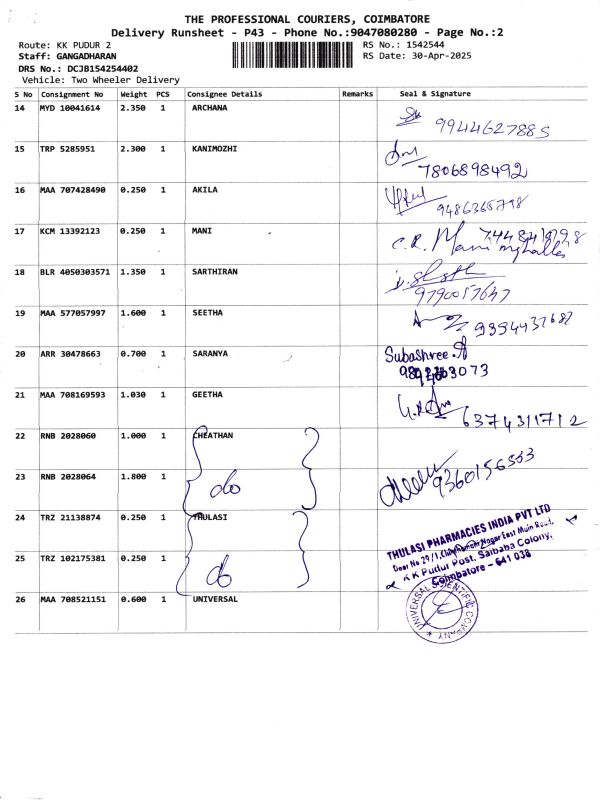 THE PROFESSIONAL COURIERS, COIMBATORE
Delivery Runsheet - P43 - Phone No.:9047080280 - Page No.:2
Route: KK PUDUR 2 RS No.: 1542544
Staff: GANGADHARAN RS Date: 30-Apr-2025
DRS No.: DCJB154254402
Vehicle: Two Wheeler Delivery
S No Consignment No Weight PCS Consignee Details Remarks Seal & Signature
14 MYD 10041614 2.350 1 ARCHANA
9944627885
15 TRP 5285951 2.300 1 KANIMOZHI
7806898492
16 MAA 707428490 0.250 1 AKILA
9486368798
17 KCM 13392123 0.250 1 MANI
C.R. Mani
18 BLR 4050303571 1.350 1 SARTHIRAN
9790057647
19 MAA 577057997 1.600 1 SEETHA
9994437687
20 ARR 30478663 0.700 1 SARANYA Subashree.A
21 MAA 708169593 1.030 1 GEETHA
6374311712
22 RNB 2028060 1.000 1 CHEATHAN
23 RNB 2028064 1.800 1 do 9360156553
24 TRZ 21138874 0.250 1 THULASI
THULASI PHARMACIES INDIA PVT LTD
Door No 29/1, Nagar East Main Road,
K K Pudur Post, Saibaba Colony,
Coimbatore - 641 038
25 TRZ 102175381 0.250 1 do
26 MAA 708521151 0.600 1 UNIVERSAL
UNIVERSAL SCIENTIFIC COMPANY